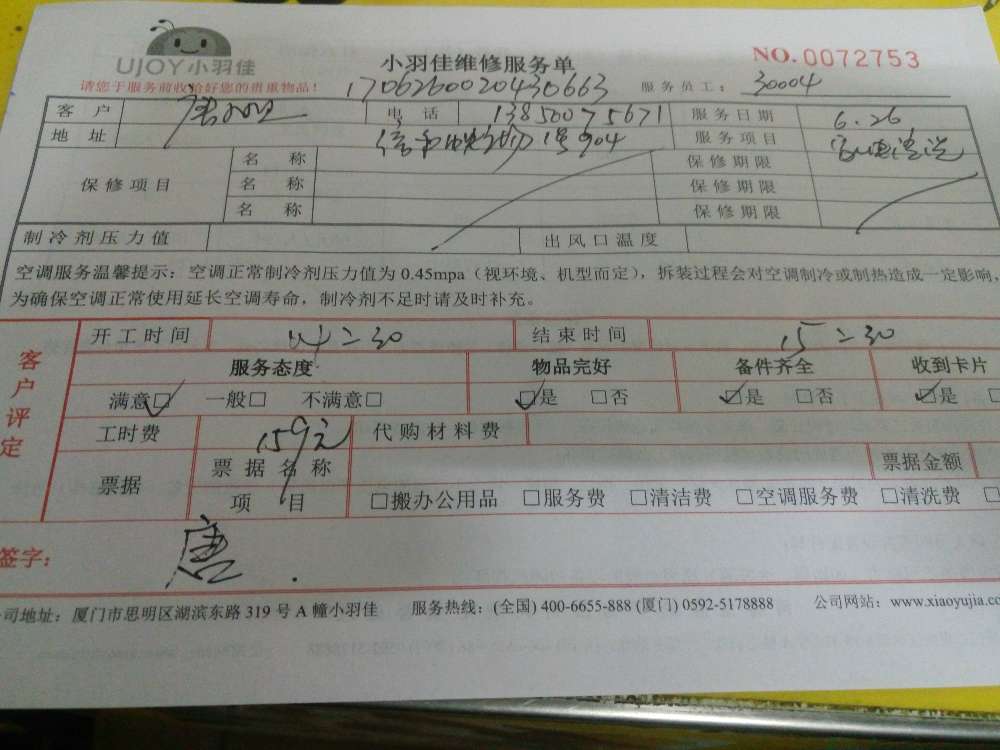 UJOY小羽佳
小羽佳维修服务单
NO.0072753
请您于服务前收拾好您的贵重物品!
1706260020430663
服务员工: 30004
客户 电话 13850075671 服务日期 6.26
地址 904 服务项目
保修项目 名称 保修期限
名称 保修期限
名称 保修期限
制冷剂压力值 出风口温度
空调服务温馨提示:空调正常制冷剂压力值为 0.45mpa(视环境、机型而定),拆装过程会对空调制冷或制热造成一定影响,
为确保空调正常使用延长空调寿命,制冷剂不足时请及时补充。
客户评定
开工时间 14:30 结束时间 15:30
服务态度 物品完好 备件齐全 收到卡片
满意☑ 一般□ 不满意□ ☑是 □否 ☑是 □否 ☑是 □
工时费 159元 代购材料费
票据 票据名称 票据金额
项目 □搬办公用品 □服务费 □清洁费 □空调服务费 □清洗费 □
签字: 唐
公司地址:厦门市思明区湖滨东路 319 号 A 幢小羽佳 服务热线:(全国) 400-6655-888 (厦门) 0592-5178888 公司网站:www.xiaoyujia.co